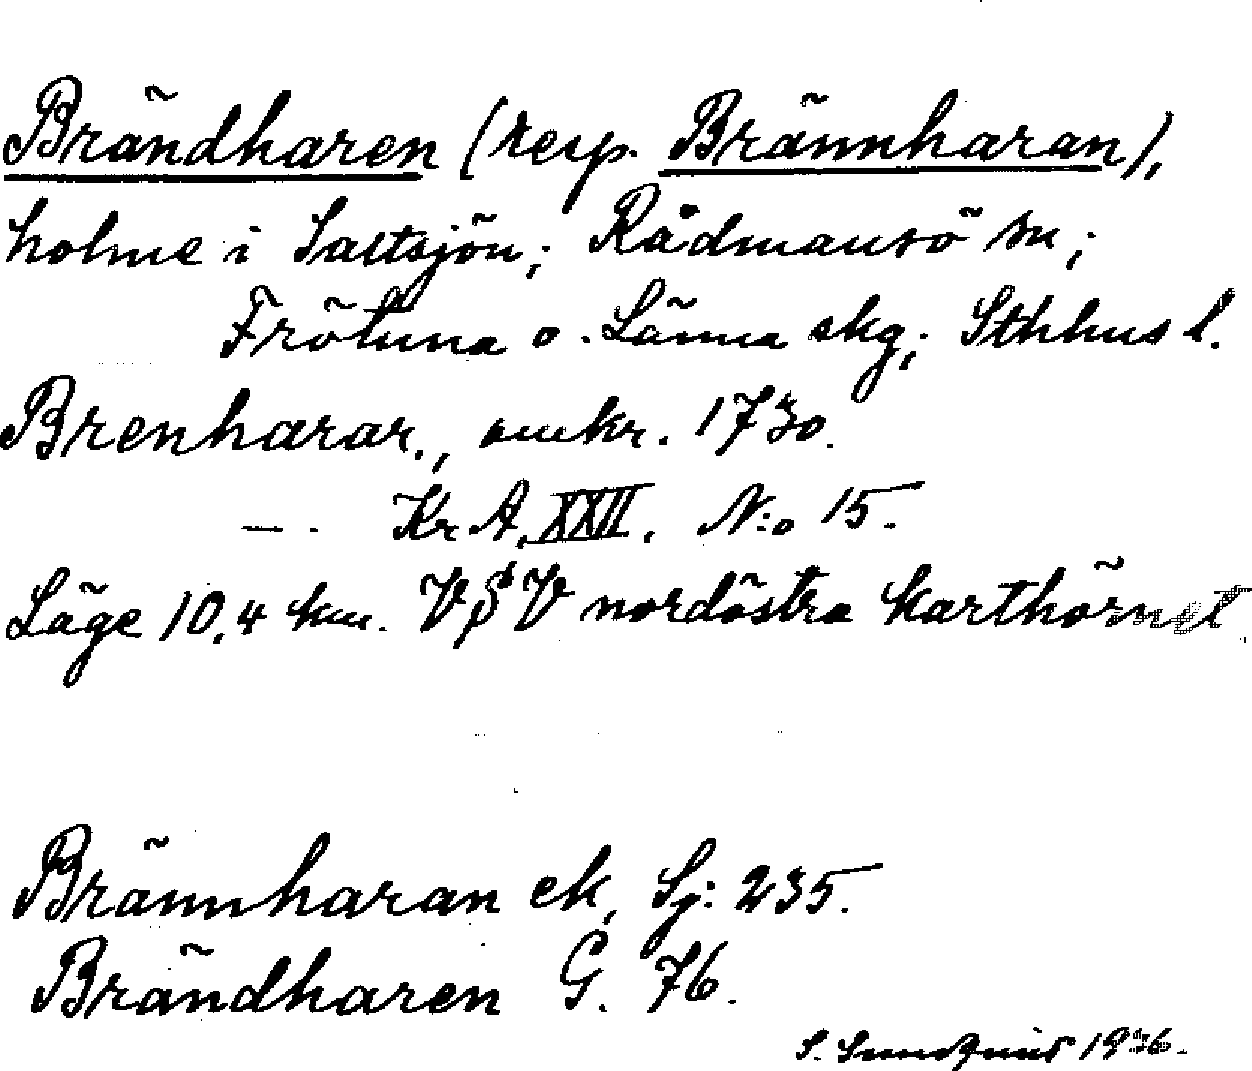 Brändharen (resp. Brännharan),
holme i Saltsjön; Rådmansö sn;
Frötuna o. Länna skg; Sthlms l.
Brenharar., omkr. 1730.
— . Kr. A. XXII. N:o 15.
Läge 10,4 km. VSV nordöstra karthörnet.
Brännharan ek, Sj: 235.
Brändharen G. 76.
S. Sundquist 1936.